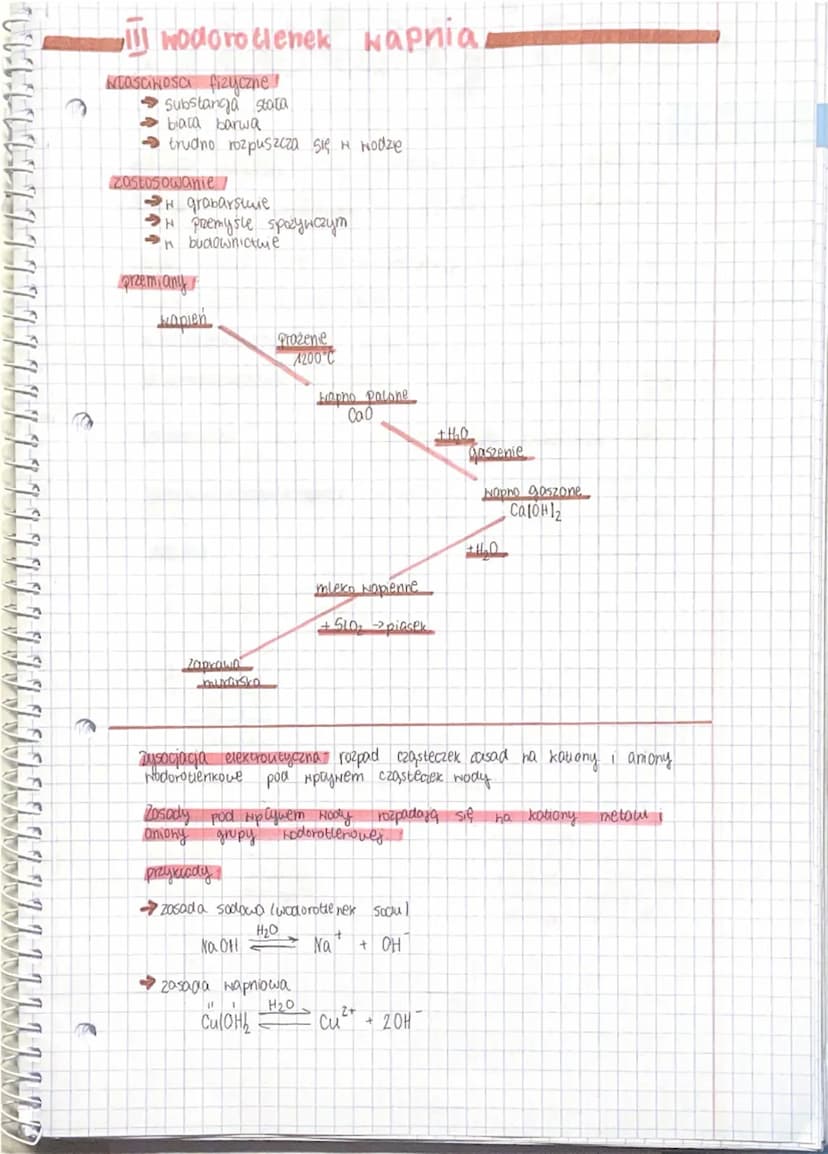 III wodorotlenek wapnia
właściwości fizyczne!
→ substancja stała
→ biała barwa
→ trudno rozpuszcza się w wodzie
zastosowanie!
→ w grabarstwie
→ w przemyśle spożywczym
→ w budownictwie
przemiany!
wapień
prażenie
1200°C
wapno palone
CaO
+H₂O
gaszenie
wapno gaszone
Ca(OH)₂
+H₂O
mleko wapienne
+ SiO₂ → piasek
zaprawa
murarska
Dysocjacja elektrolityczna- rozpad cząsteczek zasad na kationy i aniony
wodorotlenkowe pod wpływem cząsteczek wody
Zasady pod wpływem wody rozpadają się na kationy metalu i
aniony grupy wodorotlenowej.
przykłady:
→ zasada sodowa (wodorotlenek sodu)
NaOH ⇌ Na⁺ + OH⁻
H₂O
→ zasada wapniowa
II I H₂O
Cu(OH)₂ ⇌ Cu²⁺ + 2OH⁻